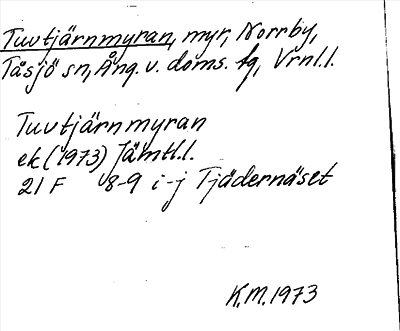 Tuvtjärnmyran, myr, Norrby,
Tåsjö sn, Ång. v. doms. fg, Vrnl.l.
Tuvtjärnmyran
ek (1973) Jämtl.l.
21 F 8-9 i-j Tjädernäset
K.M. 1973